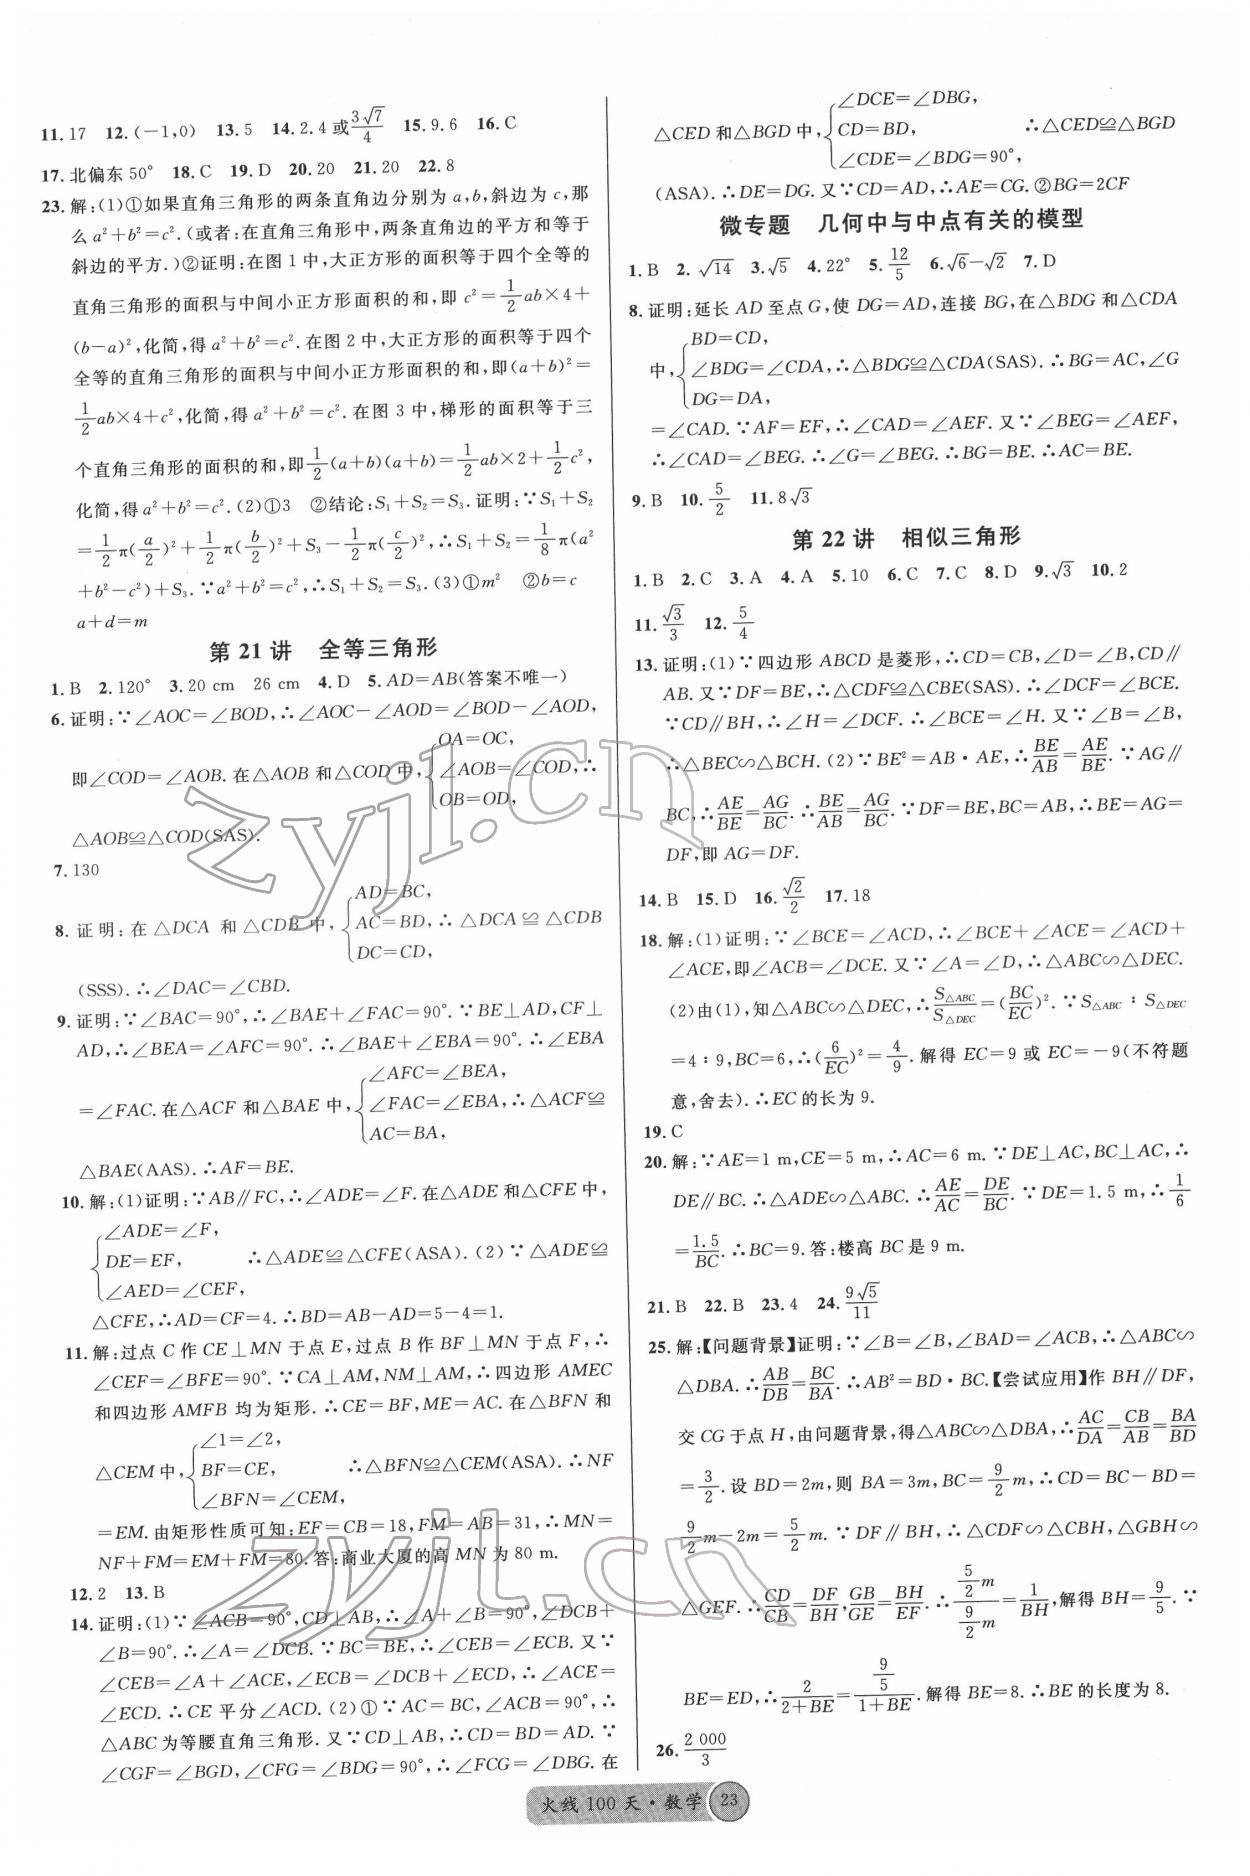 11. 17 12. (-1,0) 13. 5 14. 2.4或3√7/4 15. 9.6 16. C
17. 北偏东50° 18. C 19. D 20. 20 21. 20 22. 8
23. 解:(1)①如果直角三角形的两条直角边分别为a,b,斜边为c,那
么a²+b²=c².(或者:在直角三角形中,两条直角边的平方和等于
斜边的平方.)②证明:在图1中,大正方形的面积等于四个全等的
直角三角形的面积与中间小正方形面积的和,即c²=1/2ab×4+
(b-a)²,化简,得a²+b²=c².在图2中,大正方形的面积等于四个
全等的直角三角形的面积与中间小正方形面积的和,即(a+b)²=
1/2ab×4+c²,化简,得a²+b²=c².在图3中,梯形的面积等于三
个直角三角形的面积的和,即1/2(a+b)(a+b)=1/2ab×2+1/2c²,
化简,得a²+b²=c².(2)①3 ②结论:S₁+S₂=S₃.证明:∵S₁+S₂
=1/2π(a/2)²+1/2π(b/2)²+S₃-1/2π(c/2)²,∴S₁+S₂=1/8π(a²
+b²-c²)+S₃.∵a²+b²=c²,∴S₁+S₂=S₃.(3)①m² ②b=c
a+d=m
第21讲 全等三角形
1. B 2. 120° 3. 20 cm 26 cm 4. D 5. AD=AB(答案不唯一)
6. 证明:∵∠AOC=∠BOD,∴∠AOC-∠AOD=∠BOD-∠AOD,
即∠COD=∠AOB.在△AOB和△COD中,{OA=OC,
∠AOB=∠COD,∴
OB=OD,
△AOB≌△COD(SAS).
7. 130
8. 证明:在△DCA和△CDB中,{AD=BC,
AC=BD,∴△DCA≌△CDB
DC=CD,
(SSS).∴∠DAC=∠CBD.
9. 证明:∵∠BAC=90°,∴∠BAE+∠FAC=90°.∵BE⊥AD,CF⊥
AD,∴∠BEA=∠AFC=90°.∴∠BAE+∠EBA=90°.∴∠EBA
=∠FAC.在△ACF和△BAE中,{∠AFC=∠BEA,
∠FAC=∠EBA,∴△ACF≌
AC=BA,
△BAE(AAS).∴AF=BE.
10. 解:(1)证明:∵AB∥FC,∴∠ADE=∠F.在△ADE和△CFE中,
{∠ADE=∠F,
DE=EF, ∴△ADE≌△CFE(ASA).(2)∵△ADE≌
∠AED=∠CEF,
△CFE,∴AD=CF=4.∴BD=AB-AD=5-4=1.
11. 解:过点C作CE⊥MN于点E,过点B作BF⊥MN于点F,∴
∠CEF=∠BFE=90°.∵CA⊥AM,NM⊥AM,∴四边形AMEC
和四边形AMFB均为矩形.∴CE=BF,ME=AC.在△BFN和
△CEM中,{∠1=∠2,
BF=CE, ∴△BFN≌△CEM(ASA).∴NF
∠BFN=∠CEM,
=EM.由矩形性质可知:EF=CB=18,FM=AB=31,∴MN=
NF+FM=EM+FM=80.答:商业大厦的高MN为80 m.
12. 2 13. B
14. 证明:(1)∵∠ACB=90°,CD⊥AB,∴∠A+∠B=90°,∠DCB+
∠B=90°.∴∠A=∠DCB.∵BC=BE,∴∠CEB=∠ECB.又∵
∠CEB=∠A+∠ACE,∠ECB=∠DCB+∠ECD,∴∠ACE=
∠ECD.∴CE平分∠ACD.(2)①∵AC=BC,∠ACB=90°,∴
△ABC为等腰直角三角形.又∵CD⊥AB,∴CD=BD=AD.∵
∠CGF=∠BGD,∠CFG=∠BDG=90°,∴∠FCG=∠DBG.在
△CED和△BGD中,{∠DCE=∠DBG,
CD=BD, ∴△CED≌△BGD
∠CDE=∠BDG=90°,
(ASA).∴DE=DG.又∵CD=AD,∴AE=CG.②BG=2CF
微专题 几何中与中点有关的模型
1. B 2. √14 3. √5 4. 22° 5. 12/5 6. √6-√2 7. D
8. 证明:延长AD至点G,使DG=AD,连接BG,在△BDG和△CDA
中,{BD=CD,
∠BDG=∠CDA,∴△BDG≌△CDA(SAS).∴BG=AC,∠G
DG=DA,
=∠CAD.∵AF=EF,∴∠CAD=∠AEF.又∵∠BEG=∠AEF,
∴∠CAD=∠BEG.∴∠G=∠BEG.∴BG=BE.∴AC=BE.
9. B 10. 5/2 11. 8√3
第22讲 相似三角形
1. B 2. C 3. A 4. A 5. 10 6. C 7. C 8. D 9. √3 10. 2
11. √3/3 12. 5/4
13. 证明:(1)∵四边形ABCD是菱形,∴CD=CB,∠D=∠B,CD∥
AB.又∵DF=BE,∴△CDF≌△CBE(SAS).∴∠DCF=∠BCE.
∵CD∥BH,∴∠H=∠DCF.∴∠BCE=∠H.又∵∠B=∠B,
∴△BEC∽△BCH.(2)∵BE²=AB·AE,∴BE/AB=AE/BE.∵AG∥
BC,∴AE/BE=AG/BC.∴BE/AB=AG/BC.∵DF=BE,BC=AB,∴BE=AG=
DF,即AG=DF.
14. B 15. D 16. √2/2 17. 18
18. 解:(1)证明:∵∠BCE=∠ACD,∴∠BCE+∠ACE=∠ACD+
∠ACE,即∠ACB=∠DCE.又∵∠A=∠D,∴△ABC∽△DEC.
(2)由(1),知△ABC∽△DEC,∴S△ABC/S△DEC=(BC/EC)².∵S△ABC∶S△DEC
=4∶9,BC=6,∴(6/EC)²=4/9.解得EC=9或EC=-9(不符题
意,舍去).∴EC的长为9.
19. C
20. 解:∵AE=1 m,CE=5 m,∴AC=6 m.∵DE⊥AC,BC⊥AC,∴
DE∥BC.∴△ADE∽△ABC.∴AE/AC=DE/BC.∵DE=1.5 m,∴1/6
=1.5/BC.∴BC=9.答:楼高BC是9 m.
21. B 22. B 23. 4 24. 9√5/11
25. 解:【问题背景】证明:∵∠B=∠B,∠BAD=∠ACB,∴△ABC∽
△DBA.∴AB/DB=BC/BA.∴AB²=BD·BC.【尝试应用】作BH∥DF,
交CG于点H,由问题背景,得△ABC∽△DBA,∴AC/DA=CB/AB=BA/BD
=3/2.设BD=2m,则BA=3m,BC=9/2m,∴CD=BC-BD=
9/2m-2m=5/2m.∵DF∥BH,∴△CDF∽△CBH,△GBH∽
△GEF.∴CD/CB=DF/BH,GB/GE=BH/EF.∴5/2m/9/2m=1/BH,解得BH=9/5.∵
BE=ED,∴2/2+BE=9/5/1+BE.解得BE=8.∴BE的长度为8.
26. 2 000/3
火线100天·数学 23
zyjl.cn
zyjl.cn